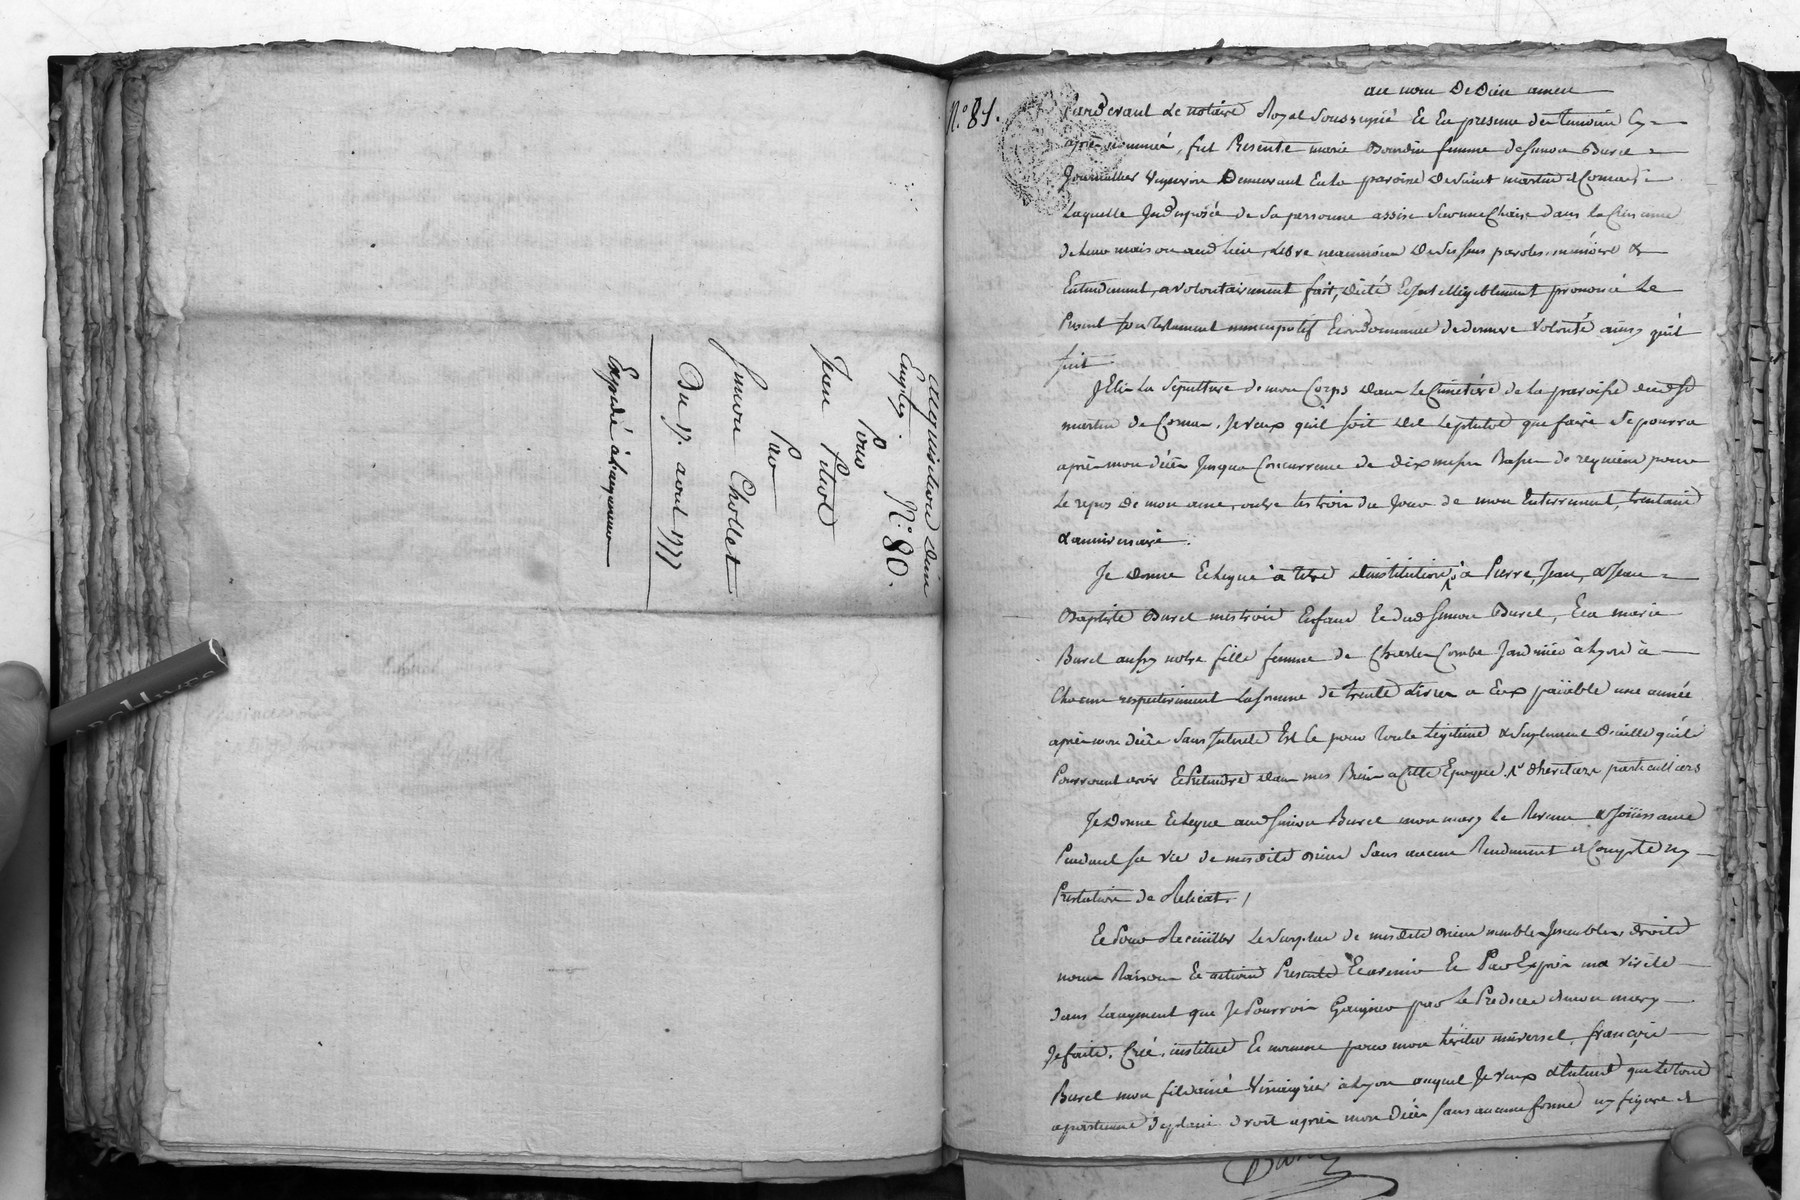 Acquisition d'un
Employ. N.° 80.
Pour
Jean Putod
Par
Simon Chollet
Du 17. aout 1777
Expedié à lacquereur
N.° 81.
au nom de Dieu amen
Pardevant Le notaire Royal soussigné Et En presence des temoins Cy
après nommés, fut Presente marie Bourdin femme de Simon Burel
Journallier Vigneron Demeurant En la paroisse de Saint martin de
Laquelle Indisposée de sa personne assise sur une Chaise dans la
de leur maison aud lieu, Libre neanmoins de ses sens paroles, memoire &
Entendement, a volontairement fait, dicté Et Intelligiblement prononcé Le
Present son testament nuncupatif Et ordonnance de derniere volonté ainsy qu'il
suit
J'Elis La sepulture de mon Corps dans Le Cimetière de La paroisse dud St
martin de , Je veux qu'il soit dit Le plutot que faire se pourra
après mon décès Jusqua Concurrence de dix messes Basses de requiem pour
Le repos de mon ame, outre les trois du Jour de mon Enterrement, trentaine
& anniversaire.
Je donne Et Legue à titre d'institution à Pierre, Jean, & Jean
Baptiste Burel mes trois Enfans Et dud Simon Burel, Et à marie
Burel aussy notre fille femme de Charle Combe Jardinier à Lyon à
Chacun respectivement La somme de trente livres a Eux païable une année
après mon décès sans Interets Et Ce pour toute Legitime & suplement d'icelle qu'ils
Pourroient avoir Et Pretendre dans mes Biens a Cette Epoque & d'heritiers particuliers
Je donne Et Legue aud Simon Burel mon mary Le Revenu & Joüissance
Pendant sa vie de mesdits Biens sans aucun Rendement de Compte ny
Prestation de Relicat.
Et Pour Recüillir Le surplus de mesdits Biens meubles Immeubles, droits
noms Raisons Et actions Presents Et avenir Et Par Exprès ma
dans Laugment que Je Pourrois Gaigner par Le Predeces de mon mary
Je fais, Créé, institue Et nomme pour mon héritier universel, françois
Burel mon fils ainé Vinaigrier à Lyon auquel Je veux & Entend que Le tout
apartienne de plain droit après mon décès sans aucune forme ny figure de